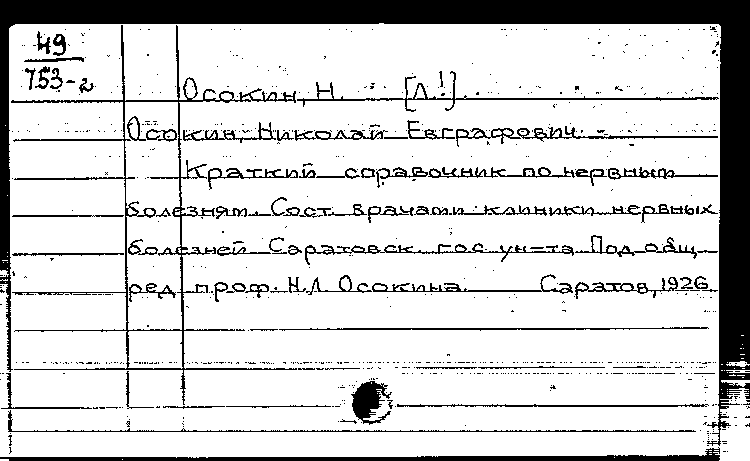 49
753-2
Осокин, Н. [Л!].
Осокин, Николай Евграфович
Краткий справочник по нервным
болезням. Сост. врачами клиники нервных
болезней Саратовск. гос. ун-та Под общ.
ред проф. Н.Л. Осокина. Саратов, 1926